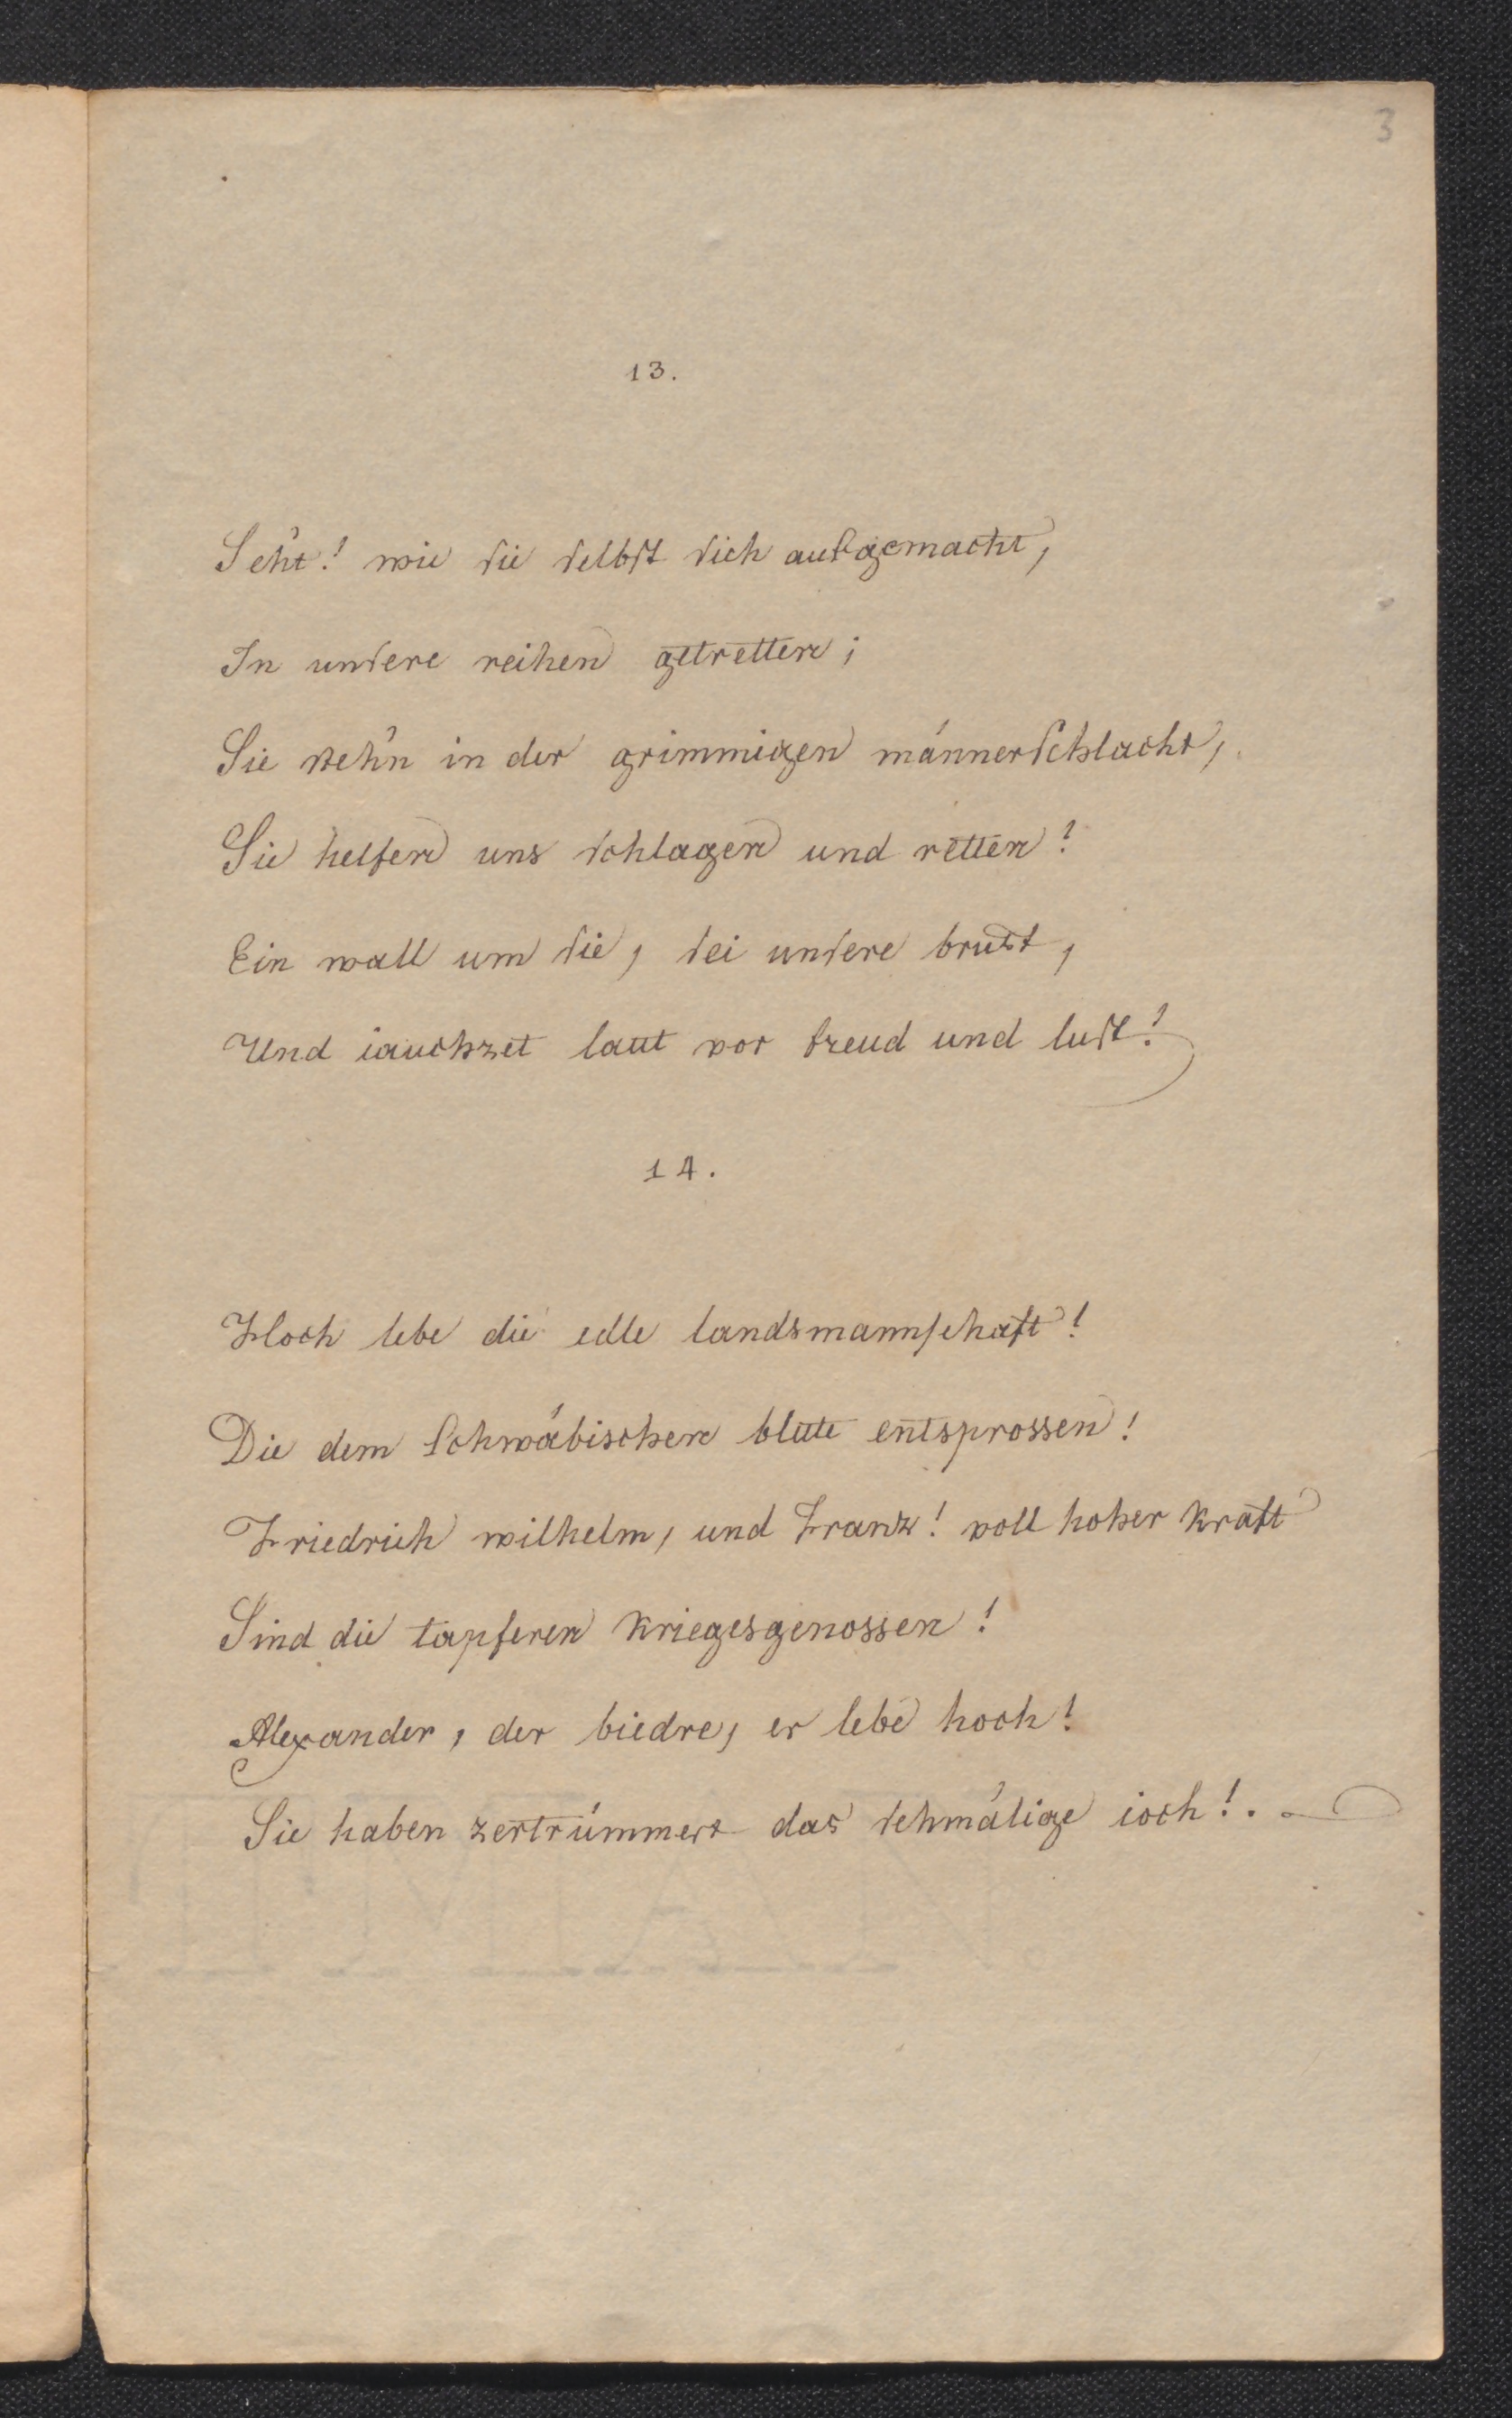 3
13.
Seht! wie sie selbst sich aufgemacht,
In unsere reihen getretten;
Sie steh'n in der grimmigen männerschlacht,
Sie helfen uns schlagen und retten!
Ein wall um sie, sei unsere brust,
Und iauchzet laut vor freud und lust!
14.
Hoch lebe die edle landsmannschaft!
Die dem schwäbischen blute entsprossen!
Friedrich wilhelm, und Franz! voll hoher kraft
Sind die tapferen kriegesgenossen!
Alexander, der biedre, er lebe hoch!
Sie haben zertrümmert das schmälige ioch!.